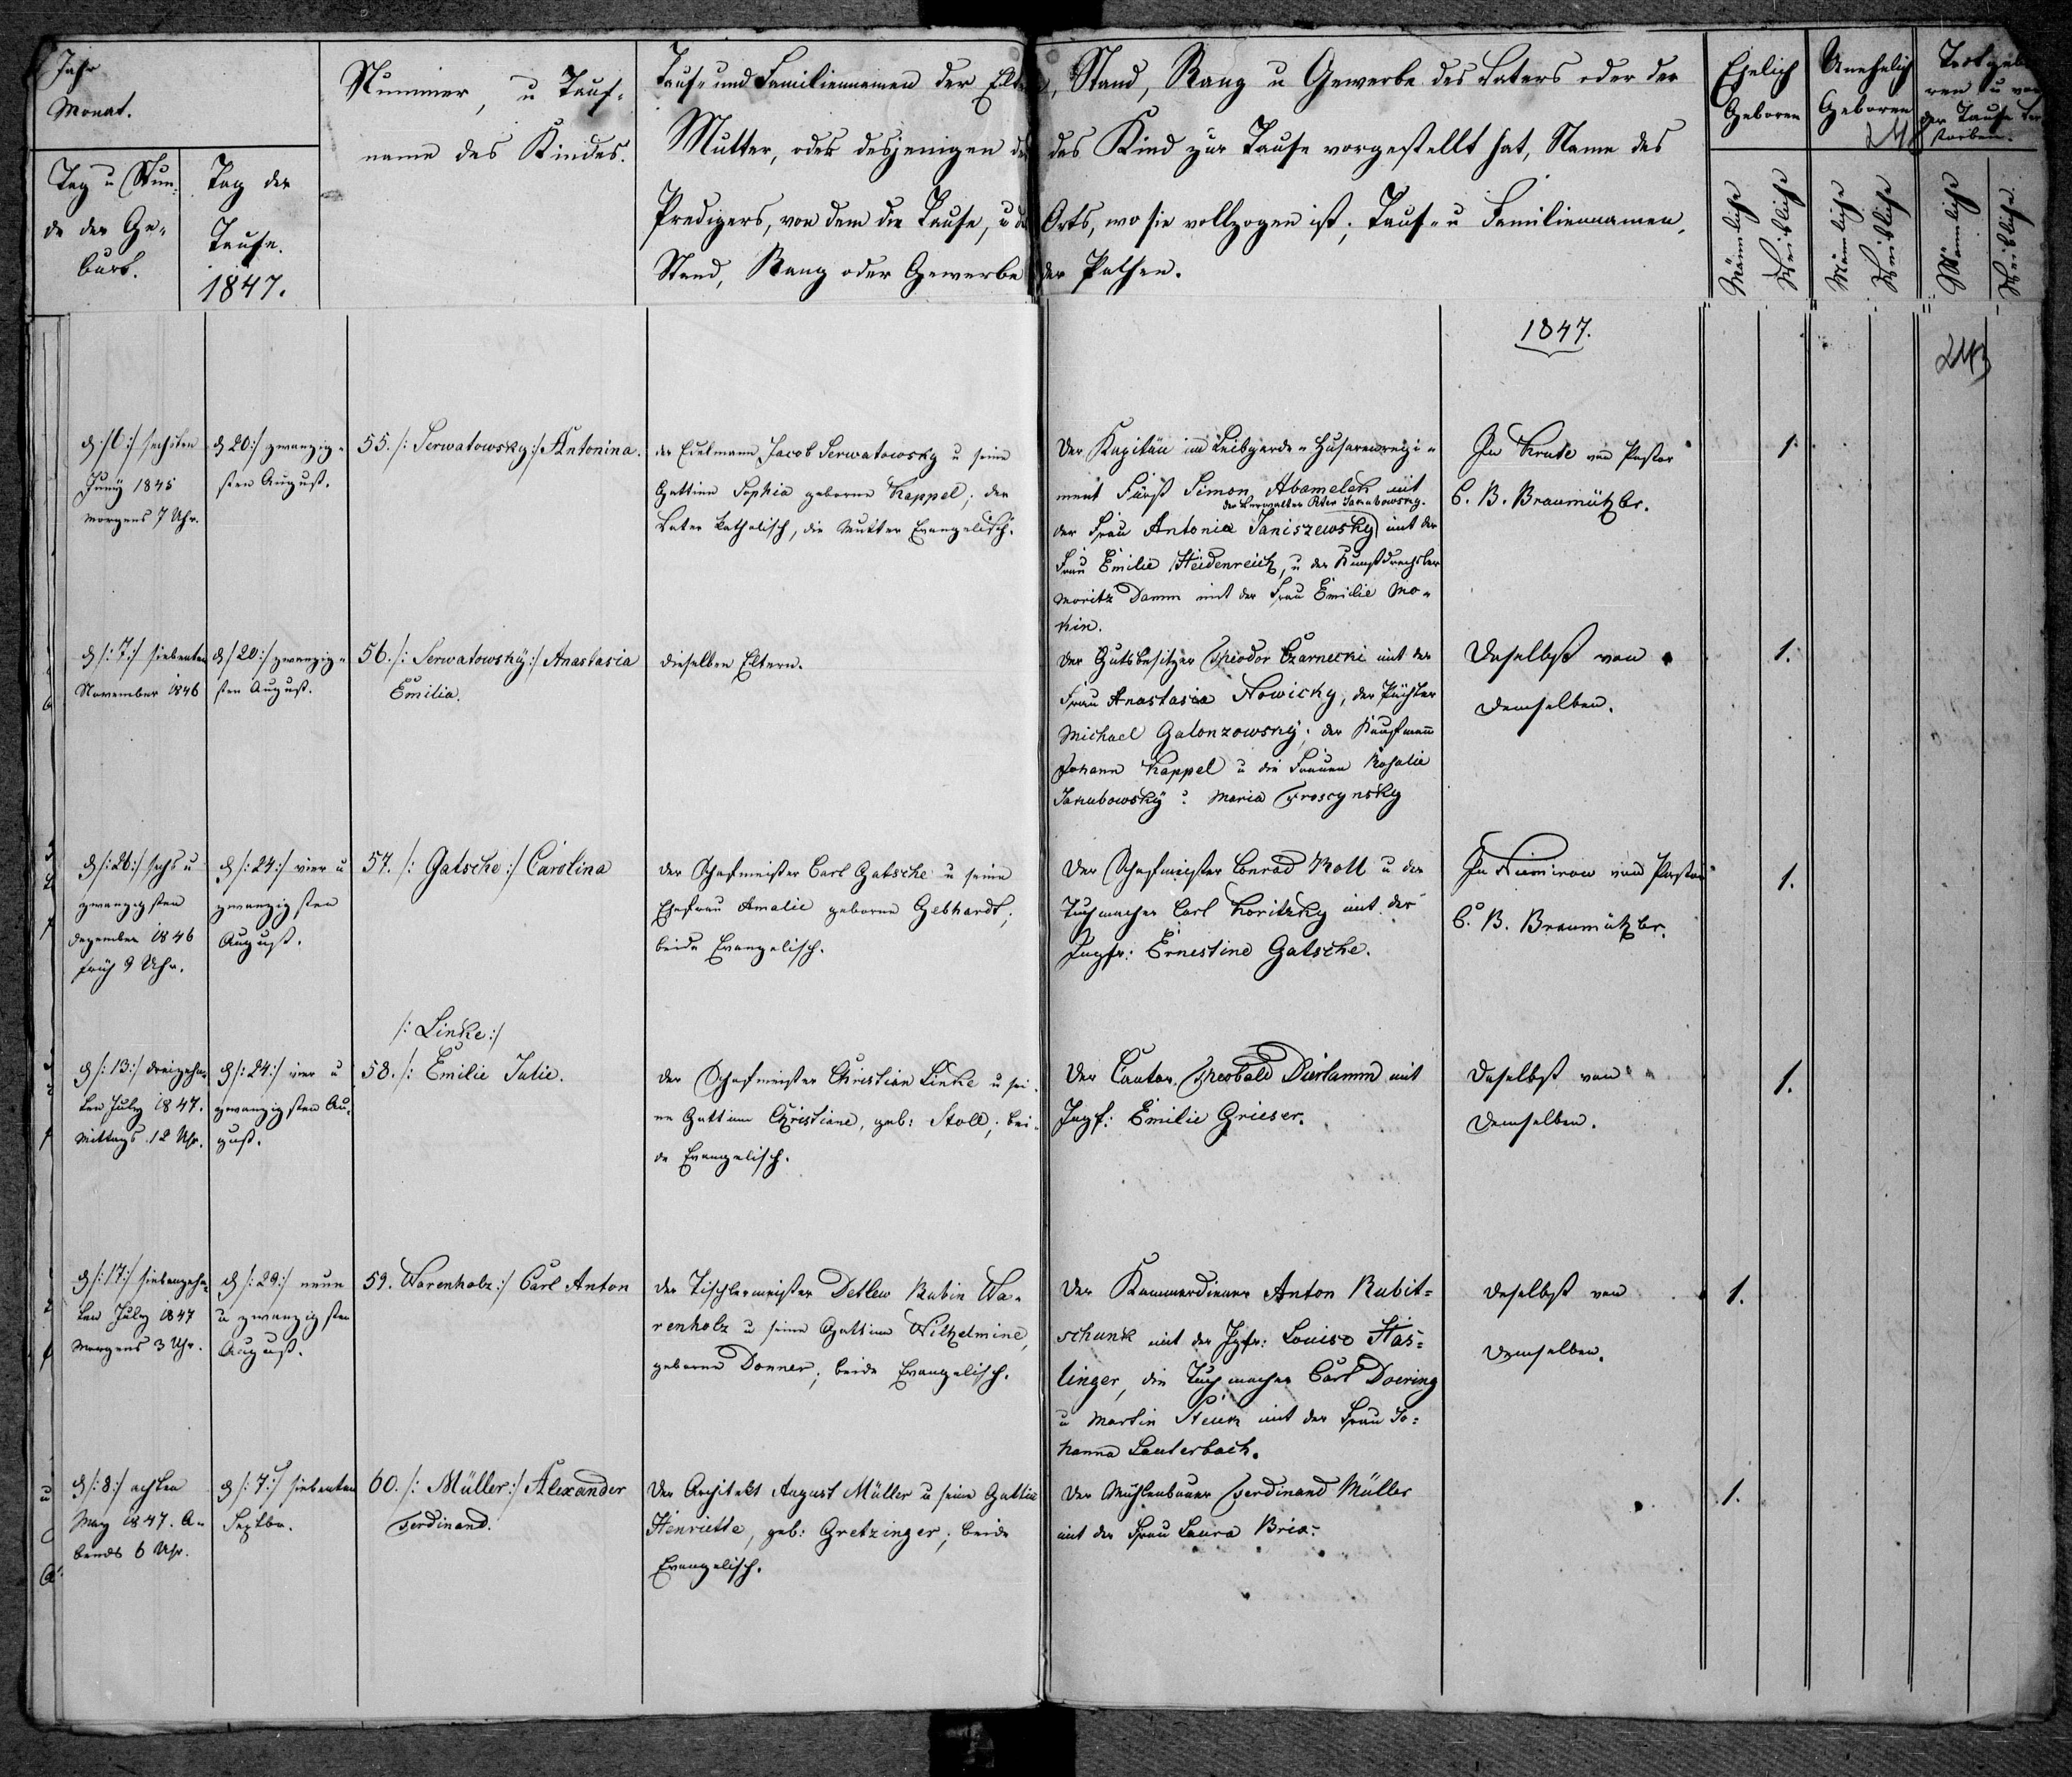 Jahr
Monat.
Tag u Stun-
de der Ge-
burt.
Tag der
Taufe.
1847.
Nummer, u Tauf-
name des Kindes.
Tauf- und Familiennamen der Eltern, Stand, Rang u Gewerbe des Vaters oder der
Mutter, oder desjenigen der das Kind zur Taufe vorgestellt hat, Name des
Predigers, von dem die Taufe, u des Orts, wo sie vollzogen ist; Tauf- u Familiennamen,
Stand, Rang oder Gewerbe der Pathen.
Ehelich
Geboren
Unehelich
Geboren
Todtgebo
ren u vor
der Taufe Ver
storben.
Männliche
Weibliche
Männliche
Weibliche
Männliche
Weibliche.
1847.
d /:6:/ sechsten
Juny 1845
morgens 7 Uhr.
d 20:/ zwanzig-
sten August.
55. /: Serwatowsky:/ Antonina.
der Edelmann Jacob Serwatowsky u seine
Gattinn Sophia geborne Kappel; der
Vater katholisch, die Mutter Evangelisch.
Der Kapitän im Leibgarde-Husarenregi-
ment Fürst Simon Abamelek mit
der Verwalter Peter Jakubowsky.
der Frau Antonia Janiszewsky mit der
Frau Emilie Heidenreich, u der Kunstdrechsler
Moritz Damm mit der Frau Emilie Mo-
kin.
In Krute von Pastor
C. B. Braumütz br.
1.
d /:7:/ siebenten
November 1846
d /20:/ zwanzig-
sten August.
56. /: Serwatowsky:/ Anastasia
Emilia.
dieselben Eltern.
Der Gutsbesitzer Theodor Czarnecki mit der
Frau Anastasia Nowicky, der Pächter
Michael Galonzowsky; der Kaufmann
Johann Kappel u die Frauen Rosalie
Jakubowsky u Maria Troscynsky
Daselbst von
demselben.
1.
d /:26:/ sechs u
zwanzigsten
Dezember 1846
früh 9 Uhr.
d /:24:/ vier u
zwanzigsten
August.
57. /: Gatsche:/ Carolina
der Schafmeister Carl Gatsche u seine
Ehefrau Amalie geborne Gebhardt;
beide Evangelisch.
Der Schafmeister Conrad Koll u der
Tuchmacher Carl Koritzky mit der
Jungfr: Ernestine Gatsche.
In Niemirow von Pastor
C. B. Braumütz br.
1.
/: Linke:/
d /:13:/ dreizehn-
ten July 1847.
Mittags 12 Uhr.
d /:24:/ vier u
zwanzigsten Au-
gust.
58. /: Emilie Julie.
der Schafmeister Christian Linke u sei-
ne Gattinn Christiane, geb: Stoll; bei-
de Evangelisch.
Der Cantor Theobald Dierlamm mit
Jngf: Emilie Grieser.
Daselbst von
demselben.
1.
d /:17:/ siebenzehn-
ten July 1847
Morgens 3 Uhr.
d /:29:/ neun
u zwanzigsten
August.
59. Warenholz:/ Carl Anton
der Tischlermeister Detlew Rabin Wa-
renholz u seine Gattinn Wilhelmine,
geborne Donner; beide Evangelisch.
Der Kammerdiener Anton Rubit-
schunk mit der Jgfr: Louise Has-
linger, die Tuchmacher Carl Doering
u Martin Steuk mit der Frau Jo-
hanna Lauterbach.
Daselbst von
demselben.
1.
d /:8:/ achten
May 1847. A-
bends 6 Uhr.
d /:7:/ siebenten
Septbr.
60. /: Müller:/ Alexander
Ferdinand.
Der Architekt August Müller u seine Gattin
Henriette, geb: Gretzinger; beide
Evangelisch.
Der Mühlenbauer Ferdinand Müller
mit der Frau Laura Bria.
1.